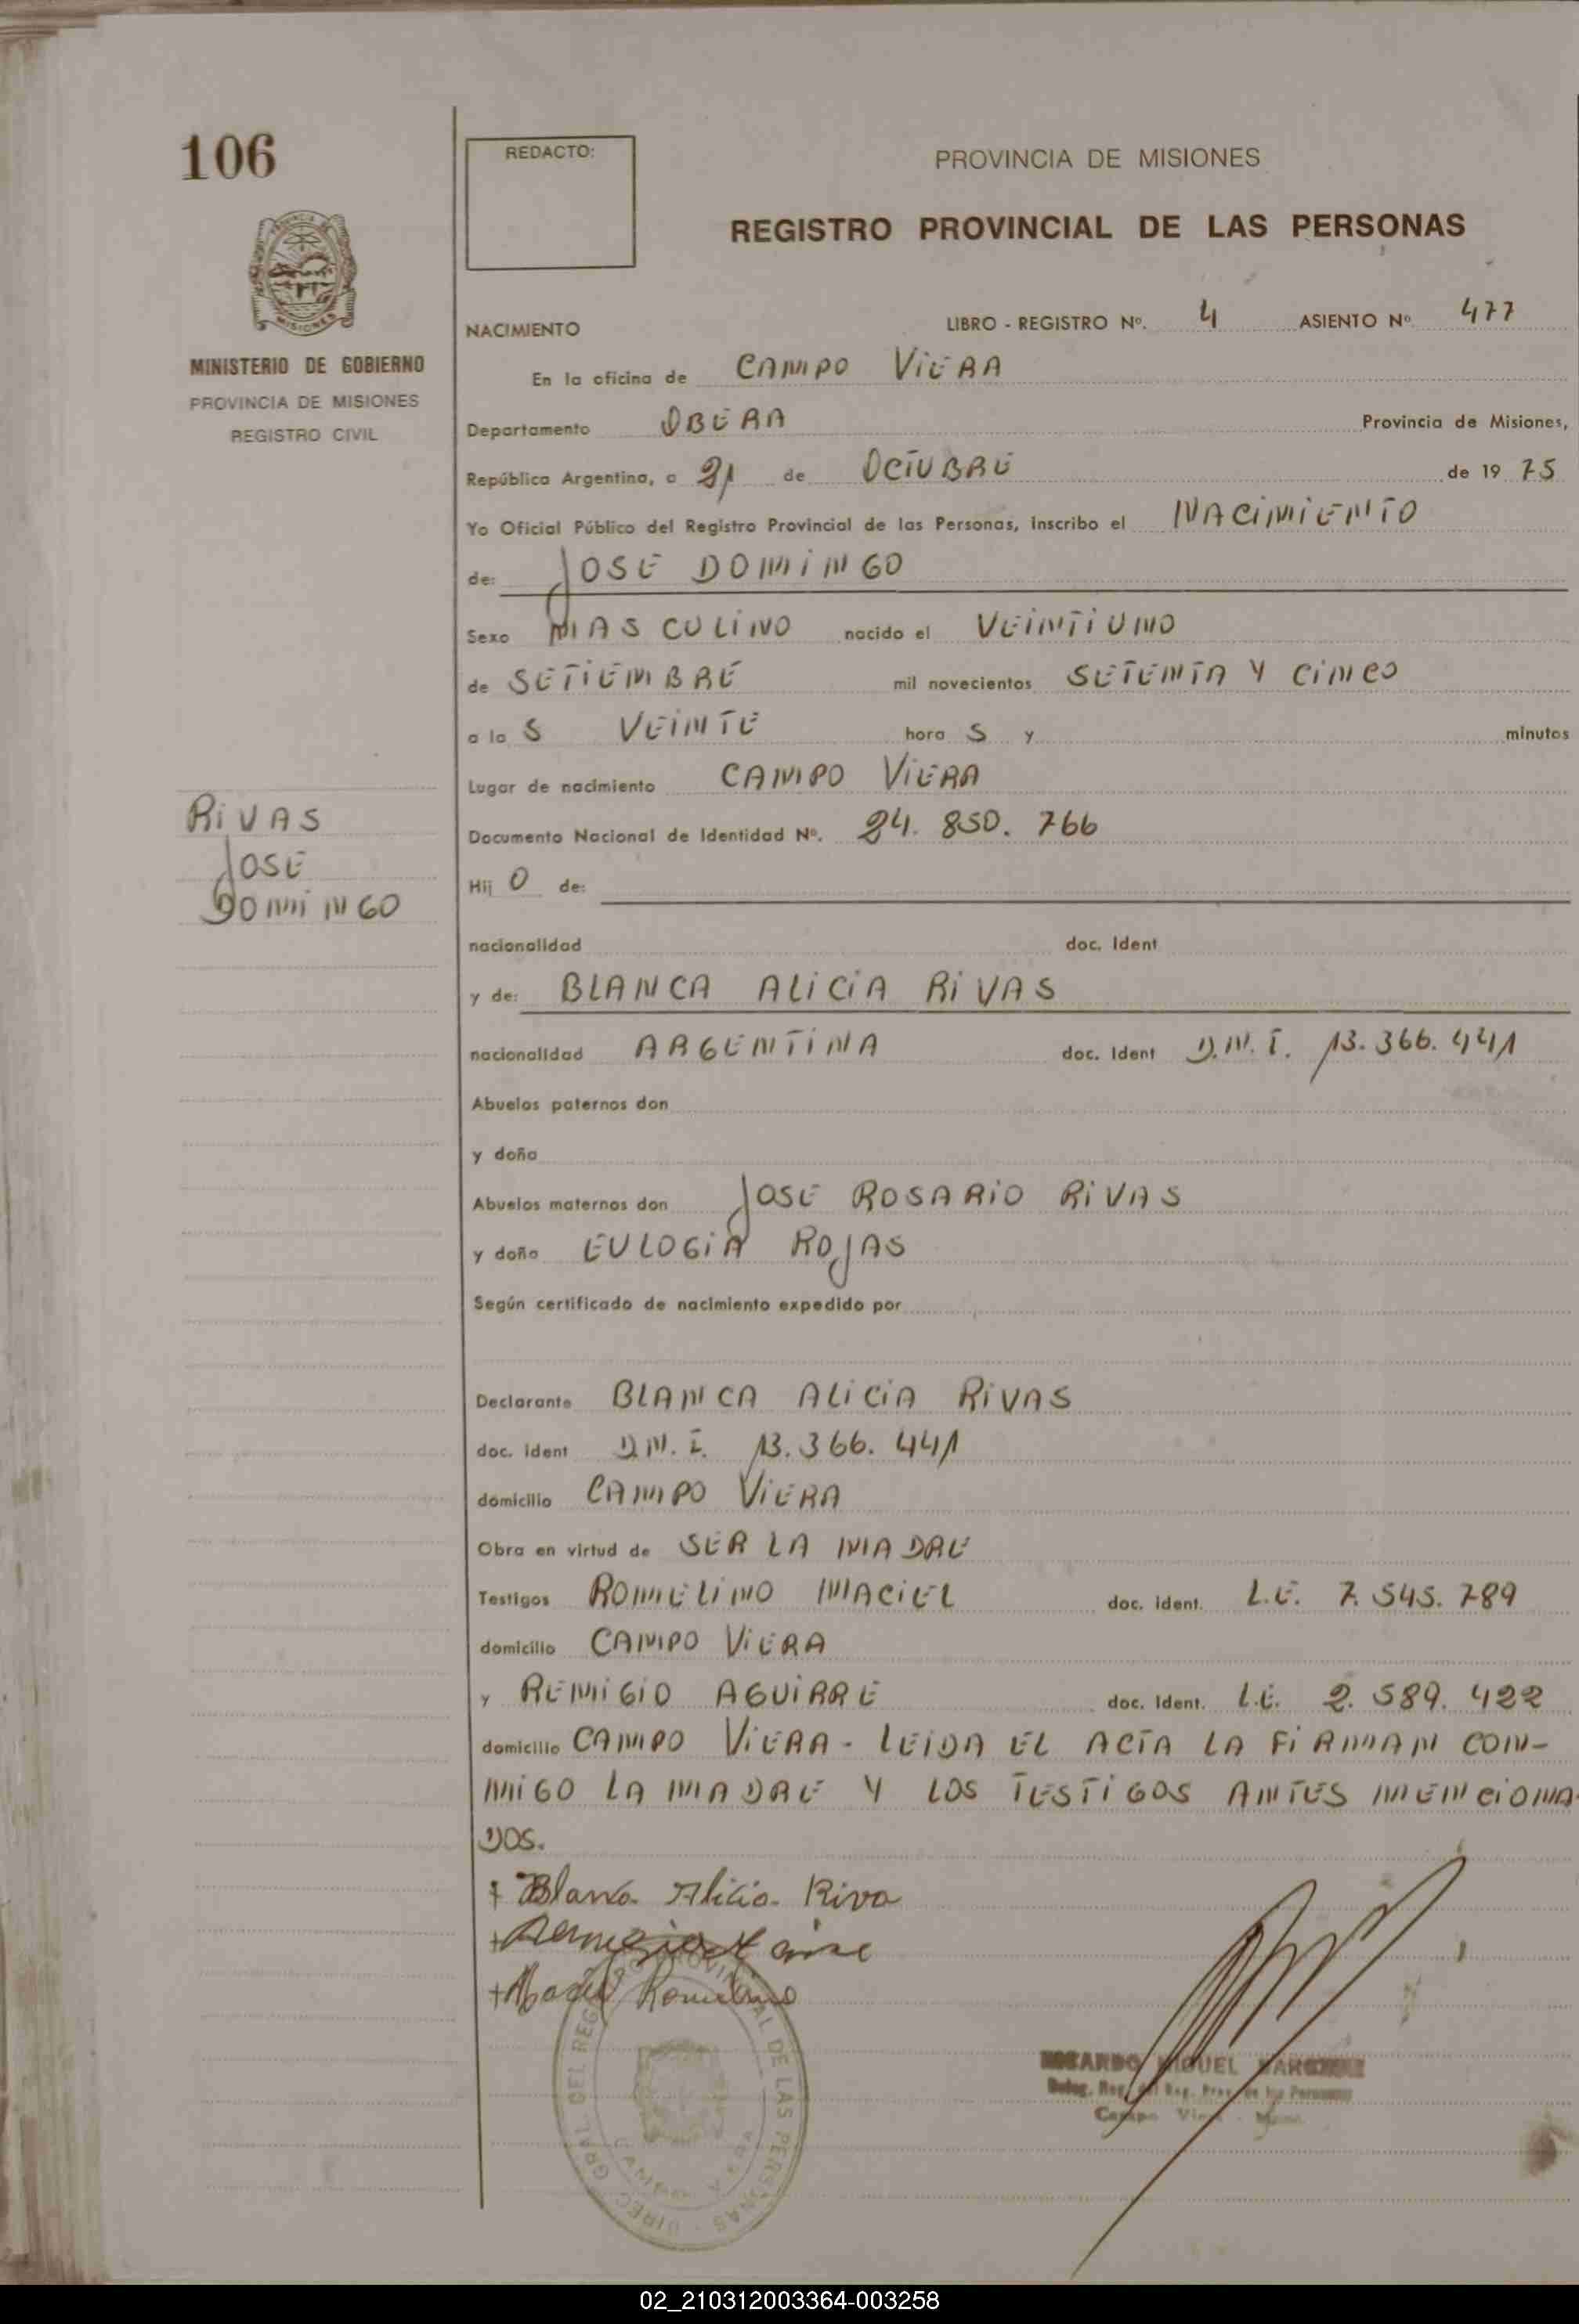 106
REDACTO:
PROVINCIA DE MISIONES
REGISTRO PROVINCIAL DE LAS PERSONAS
MISIONES
MINISTERIO DE GOBIERNO
PROVINCIA DE MISIONES
REGISTRO CIVIL
NACIMIENTO LIBRO - REGISTRO Nº. 4 ASIENTO Nº 477
En la oficina de CAMPO VIERA
Departamento OBERA Provincia de Misiones,
República Argentina, a 21 de OCTUBRE de 19 75
Yo Oficial Público del Registro Provincial de las Personas, inscribo el NACIMIENTO
de: JOSE DOMINGO
Sexo MASCULINO nacido el VEINTIUNO
de SETIEMBRE mil novecientos SETENTA Y CINCO
a la S VEINTE hora S y minutos
Lugar de nacimiento CAMPO VIERA
Documento Nacional de Identidad Nº. 24.850.766
RIVAS
JOSE
DOMINGO
Hij O de:
nacionalidad doc. Ident
y de: BLANCA ALICIA RIVAS
nacionalidad ARGENTINA doc. Ident D.N.I. 13.366.441
Abuelos paternos don
y doña
Abuelos maternos don JOSE ROSARIO RIVAS
y doña EULOGIA ROJAS
Según certificado de nacimiento expedido por
Declarante BLANCA ALICIA RIVAS
doc. ident D.N.I. 13.366.441
domicilio CAMPO VIERA
Obra en virtud de SER LA MADRE
Testigos ROMELINO MACIEL doc. ident. L.E. 7.545.789
domicilio CAMPO VIERA
y REMIGIO AGUIRRE doc. Ident. L.E. 2.589.422
domicilio CAMPO VIERA - LEIDA EL ACTA LA FIRMAN CON-
MIGO LA MADRE Y LOS TESTIGOS ANTES MENCIONA-
DOS.
Blanca Alicia Riva
DIREC. GRAL DEL REG. PROVINCIAL DE LAS PERSONAS
MIGUEL
Campo
02_210312003364-003258